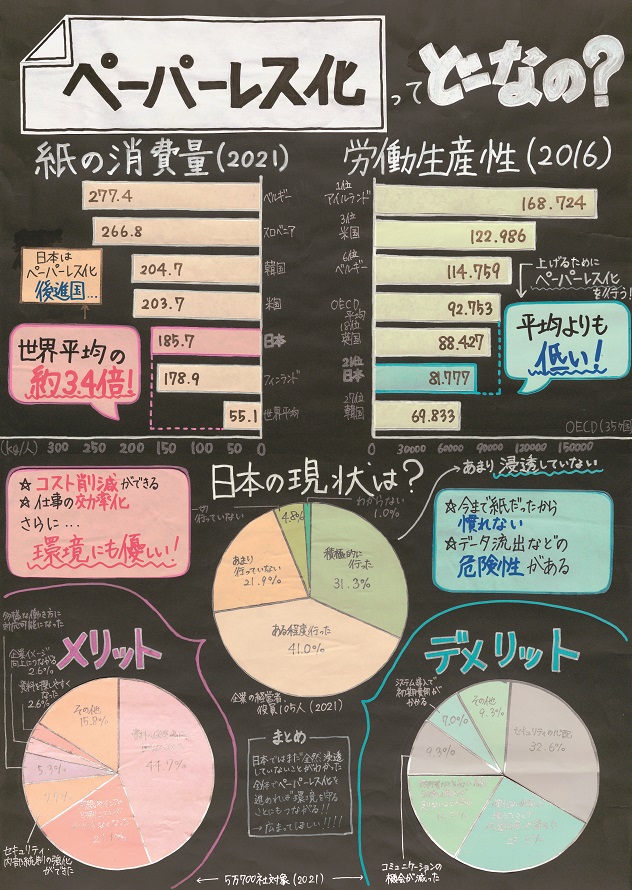 ペーパーレス化ってどーなの?
紙の消費量(2021)
277.4 ベルギー
266.8 スロベニア
204.7 韓国
203.7 米国
185.7 日本
178.9 フィンランド
55.1 世界平均
(kg/人) 300 250 200 150 100 50 0
日本は
ペーパーレス化
後進国…
世界平均の
約3.4倍!
労働生産性(2016)
1位
アイルランド 168.724
3位
米国 122.986
6位
ベルギー 114.759
OECD
平均 92.753
18位
韓国 88.427
21位
日本 81.777
27位
韓国 69.833
0 30000 60000 90000 120000 150000
OECD(35ヶ国)
上げるために
ペーパーレス化
を行う!
平均よりも
低い!
☆コスト削減ができる
☆仕事の効率化
さらに…
環境にも優しい!
日本の現状は?
あまり浸透していない
一切
行っていない
4.8%
わからない
1.0%
積極的に
行った
31.3%
あまり
行っていない
21.9%
ある程度行った
41.0%
企業の経営者、
役員105人(2021)
☆今まで紙だったから
慣れない
☆データ流出などの
危険性がある
メリット
多様な働き方に
対応可能になった
企業イメージ
向上につながる
2.6%
資料を探しやすく
なった
2.6%
その他
15.8%
44.7%
5.3%
セキュリティ・
内部統制の強化
ができた
まとめ
日本ではまだ全然浸透
していないことがわかった
全体でペーパーレス化を
進めれば環境を守る
ことにもつながる!!
→広まってほしい!!!!
デメリット
システム導入で
初期費用が
かかる
7.0%
その他
9.3%
セキュリティの心配
32.6%
9.3%
コミュニケーションの
機会が減った
← 5万700社対象(2021) →